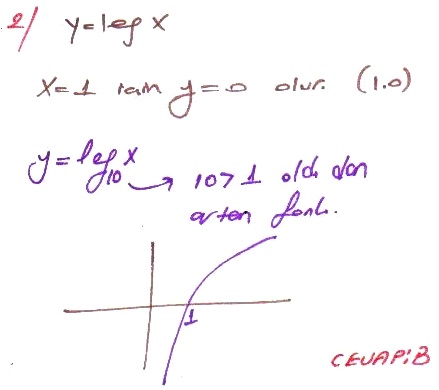 2/ y=log x
x=1 için y=0 olur. (1.0)
y=log₁₀x → 10>1 old. dan
artan fonk.
1
CEVAP:B